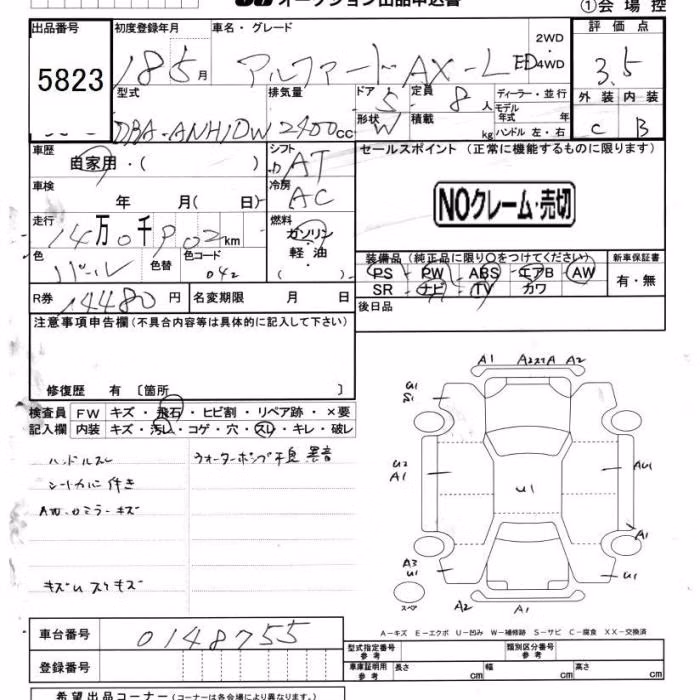 オークション出品申込書
①会場控
出品番号 5823
初度登録年月 18 5 月
車名・グレード アルファード AX-L
2WD
4WD
評価点 3.5
外装 内装
C B
型式 DBA-ANH10W
排気量 2400 cc
ドア 5
形状 W
定員 8 人
積載 kg
ディーラー・並行
モデル年式 年
ハンドル 左・右
車歴 自家用・( )
シフト AT
セールスポイント (正常に機能するものに限ります)
NOクレーム・売切
車検 年 月( 日)
冷房 AC
走行 14万0千902km
燃料 ガソリン・軽油 ( )
色 パール
色替
色コード 042
装備品 (純正品に限り○をつけてください)
PS PW ABS エアB AW
SR ナビ TV カワ
新車保証書
有・無
R券 14480 円
名変期限 月 日
後日品
注意事項申告欄(不具合内容等は具体的に記入して下さい)
修復歴 有〔箇所 〕
検査員記入欄
FW キズ・飛石・ヒビ割・リペア跡・×要
内装 キズ・汚レ・コゲ・穴・スレ・キレ・破レ
ハンドルスレ
ウォーターポンプ 異音
シートカバー付き
AW.ロミラーキズ
A1 A2 A2
U1
S1
U2
A1
U1
AU1
A1
A3
U1
U1
スペア
A2 A1
A-キズ E-エクボ U-凹み W-補修跡 S-サビ C-腐食 XX-交換済
車台番号 0148755
登録番号
型式指定番号 参考
類別区分番号 参考
車庫証明用 参考 長さ cm 幅 cm 高さ cm
希望出品コーナー(コーナーは各会場により異なります。)